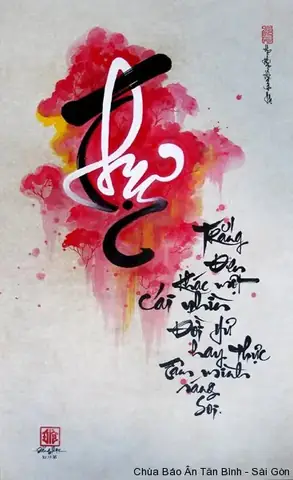 Thực
Trắng
Đen
khác một
Cái nhìn
Đời hư
hay thực
Tâm mình
sáng
Soi.
Chùa Báo Ân Tân Bình - Sài Gòn